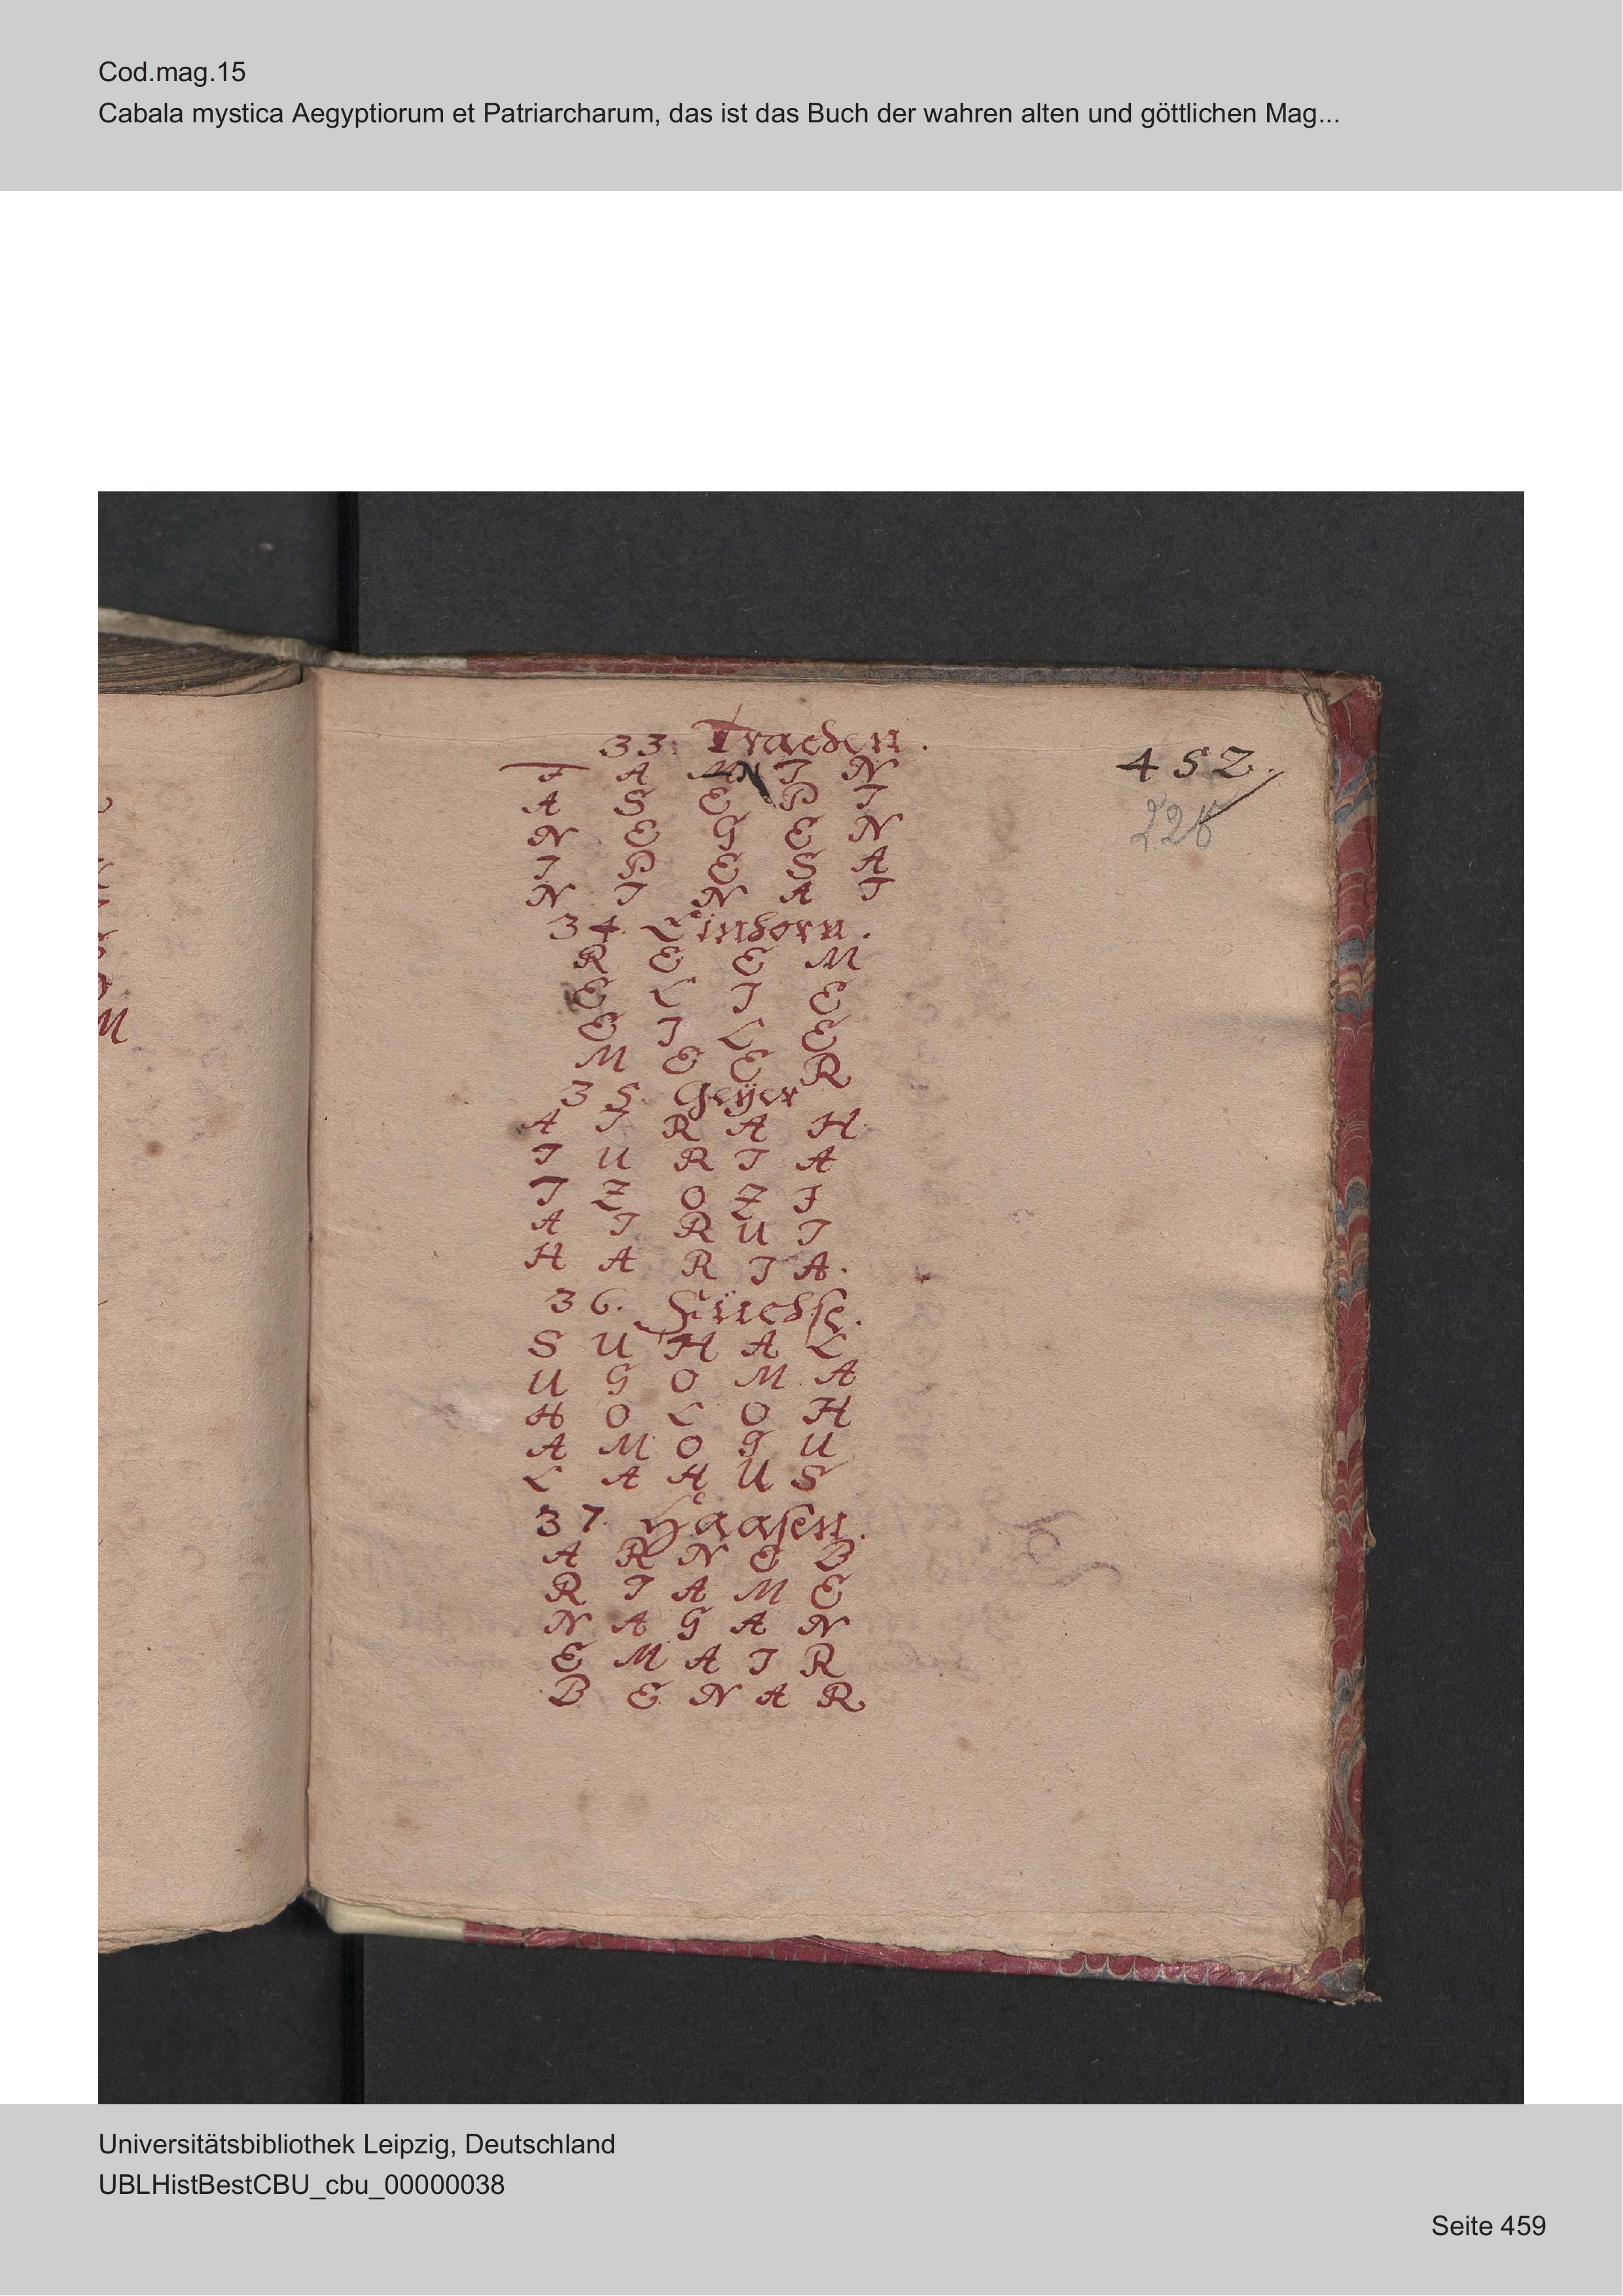 Cod.mag.15
Cabala mystica Aegyptiorum et Patriarcharum, das ist das Buch der wahren alten und göttlichen Mag...
33. Trachen.
452.
T A N I N
A S E P I
N E G E N
I P E S A
N I N A T
34. Einhorn.
R E E M
E L I E
E I L E
M E E R
35. Geÿer
A I R A H
I U R T A
I Z O Z I
A T R U I
H A R I A.
36. Füchse.
S U H A L
U G O M A
H O L O H
A M O G U
L A H U S
37. Haasen.
A R N E B
R I A M E
N A G A N
E M A I R
B E N A R
M
Universitätsbibliothek Leipzig, Deutschland
UBLHistBestCBU_cbu_00000038
Seite 459